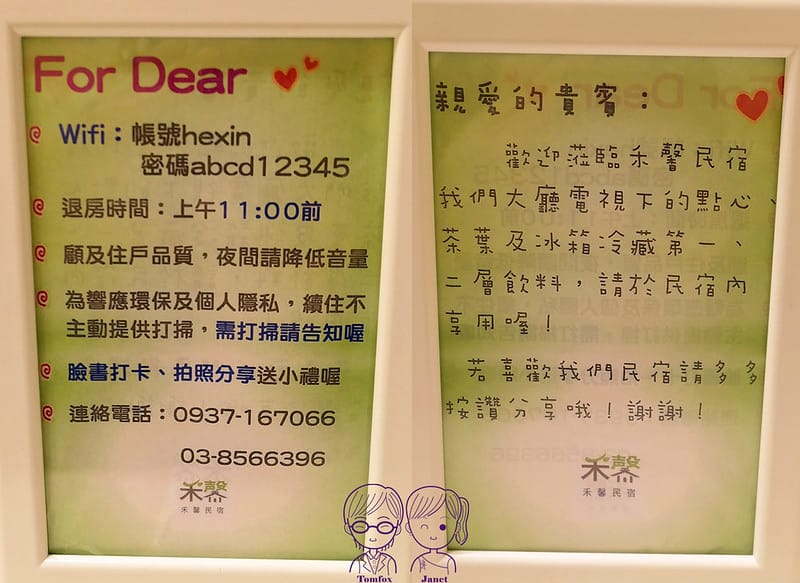 For Dear
Wifi：帳號hexin
密碼abcd12345
退房時間：上午11:00前
顧及住戶品質，夜間請降低音量
為響應環保及個人隱私，續住不
主動提供打掃，需打掃請告知喔
臉書打卡、拍照分享送小禮喔
連絡電話：0937-167066
03-8566396
禾馨
禾馨民宿
親愛的貴賓：
歡迎蒞臨禾馨民宿
我們大廳電視下的點心、
茶葉及冰箱冷藏第一、
二層飲料，請於民宿內
享用喔！
若喜歡我們民宿請多多
按讚分享哦！謝謝！
禾馨
禾馨民宿
Tomfox
Janet